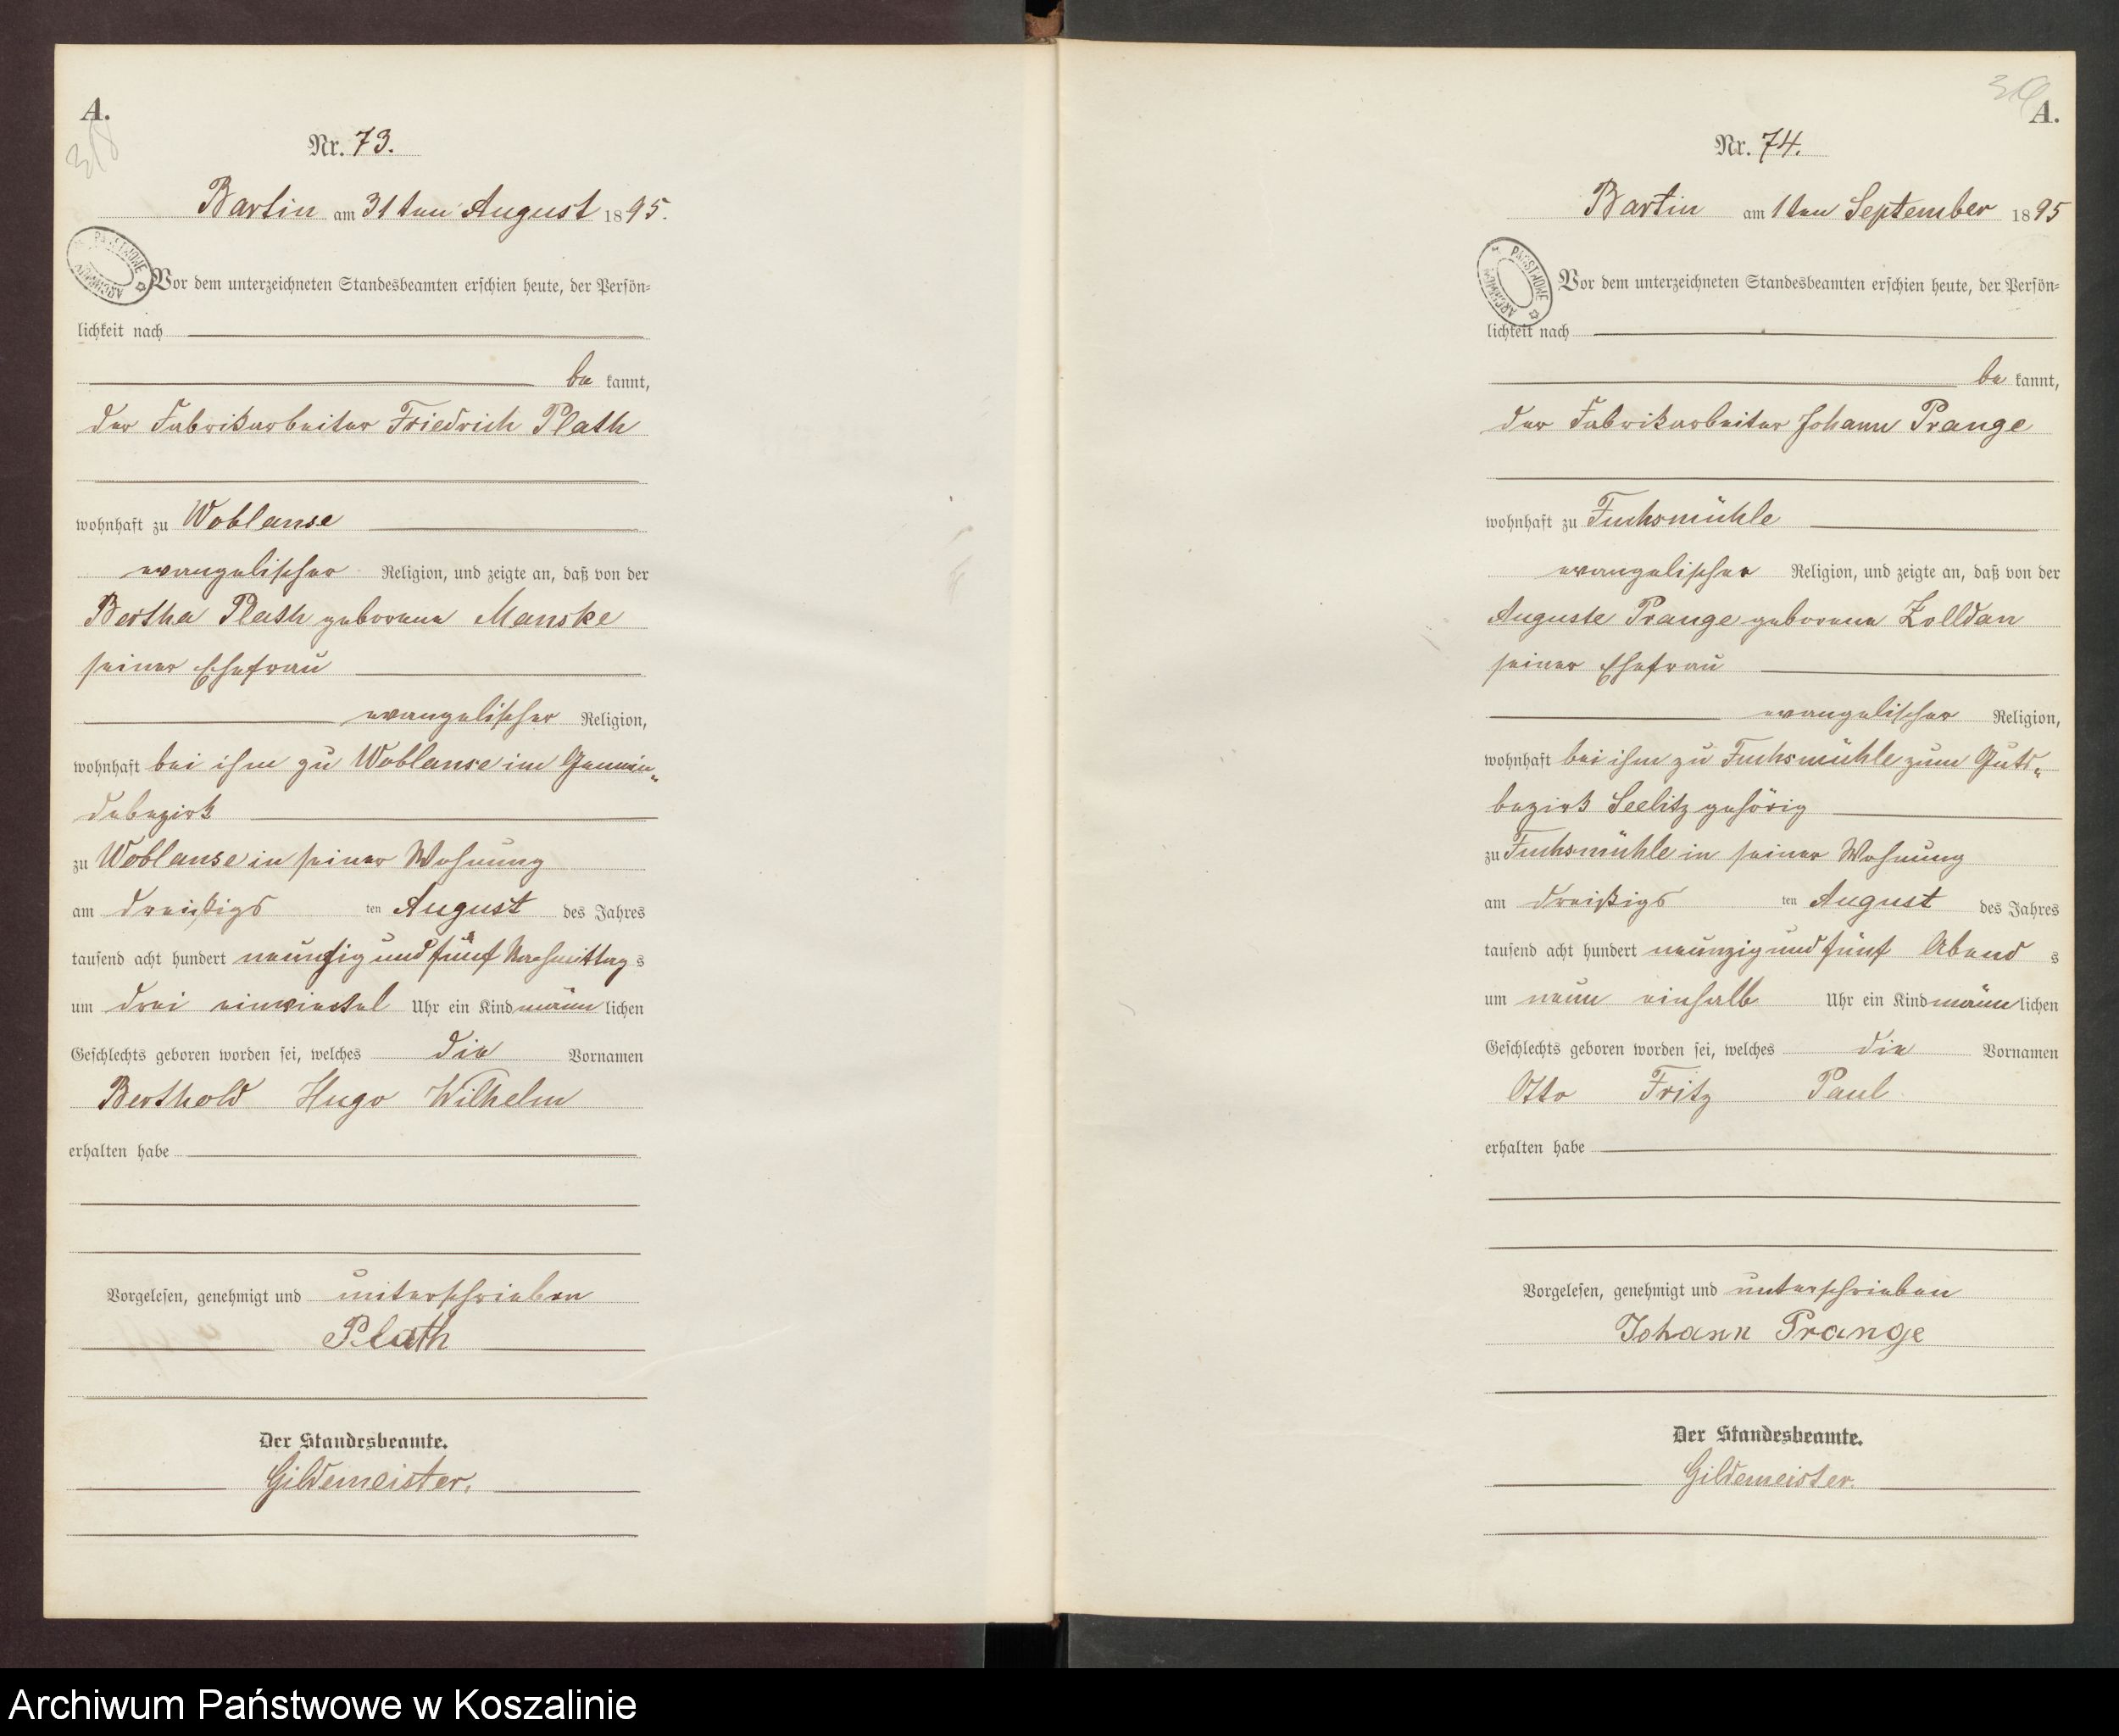 A.
318
Nr. 73.
Bartin am 31ten August 1895.
Vor dem unterzeichneten Standesbeamten erschien heute, der Persön=
lichkeit nach
be kannt,
der Fabrikarbeiter Friedrich Plath
wohnhaft zu Woblanse
evangelischer Religion, und zeigte an, daß von der
Bertha Plath geborene Manske
seiner Ehefrau
evangelischer Religion,
wohnhaft bei ihm zu Woblanse im Gemein„
debezirk
zu Woblanse in seiner Wohnung
am dreißigs ten August des Jahres
tausend acht hundert neunzig und fünf Nachmittag s
um drei einviertel Uhr ein Kind männ lichen
Geschlechts geboren worden sei, welches die Vornamen
Berthold Hugo Wilhelm
erhalten habe
Vorgelesen, genehmigt und unterschrieben
Plath
Der Standesbeamte.
Gildemeister.
A.
Nr. 74.
Bartin am 1ten September 1895
Vor dem unterzeichneten Standesbeamten erschien heute, der Persön=
lichkeit nach
be kannt,
der Fabrikarbeiter Johann Prange
wohnhaft zu Fuchsmühle
evangelischer Religion, und zeigte an, daß von der
Auguste Prange geborene Zolldan
seiner Ehefrau
evangelischer Religion,
wohnhaft bei ihm zu Fuchsmühle zum Guts„
bezirk Seelitz gehörig
zu Fuchsmühle in seiner Wohnung
am dreißigs ten August des Jahres
tausend acht hundert neunzig und fünf Abend s
um neun einhalb Uhr ein Kind männ lichen
Geschlechts geboren worden sei, welches die Vornamen
Otto Fritz Paul
erhalten habe
Vorgelesen, genehmigt und unterschrieben
Johann Prange
Der Standesbeamte.
Gildemeister.
Archiwum Państwowe w Koszalinie